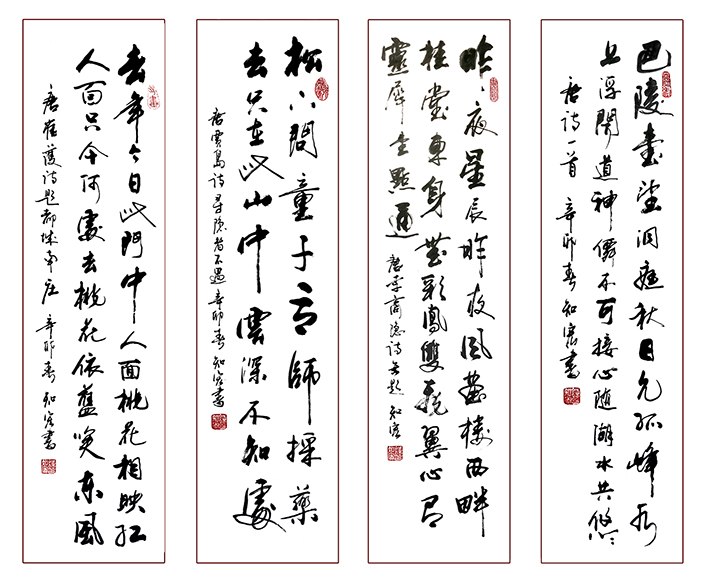 巴陵壹望洞庭秋日見孤峰水
上浮聞道神僊不可接心隨湖水共悠〻
唐詩一首 辛卯春 知書
昨〻夜星辰昨夜風畫樓西畔
桂堂東身無彩鳳雙飛翼心有
靈犀一點通
唐李商隱詩無題 知
松下問童子言師採藥
去只在此山中雲深不知處
唐賈島詩尋隱者不遇 辛卯春 知書
去年今日此門中人面桃花相映紅
人面只今何處去桃花依舊笑東風
唐崔護詩題都城南庄 辛卯春 知書